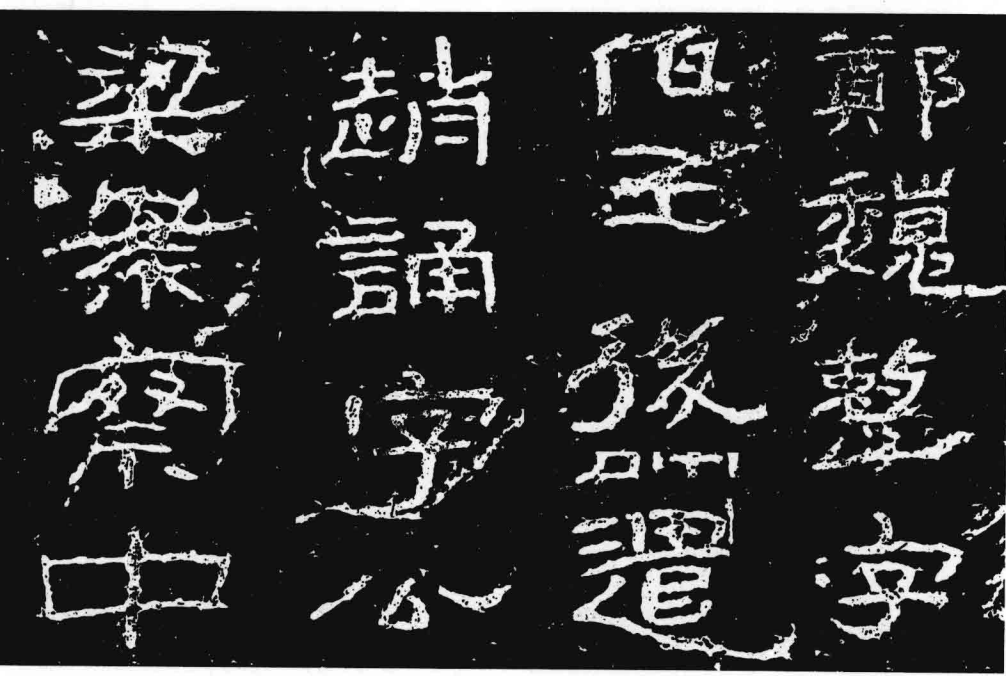 鄭魏整字
伯玉後遣
趙誦字公
梁案察中